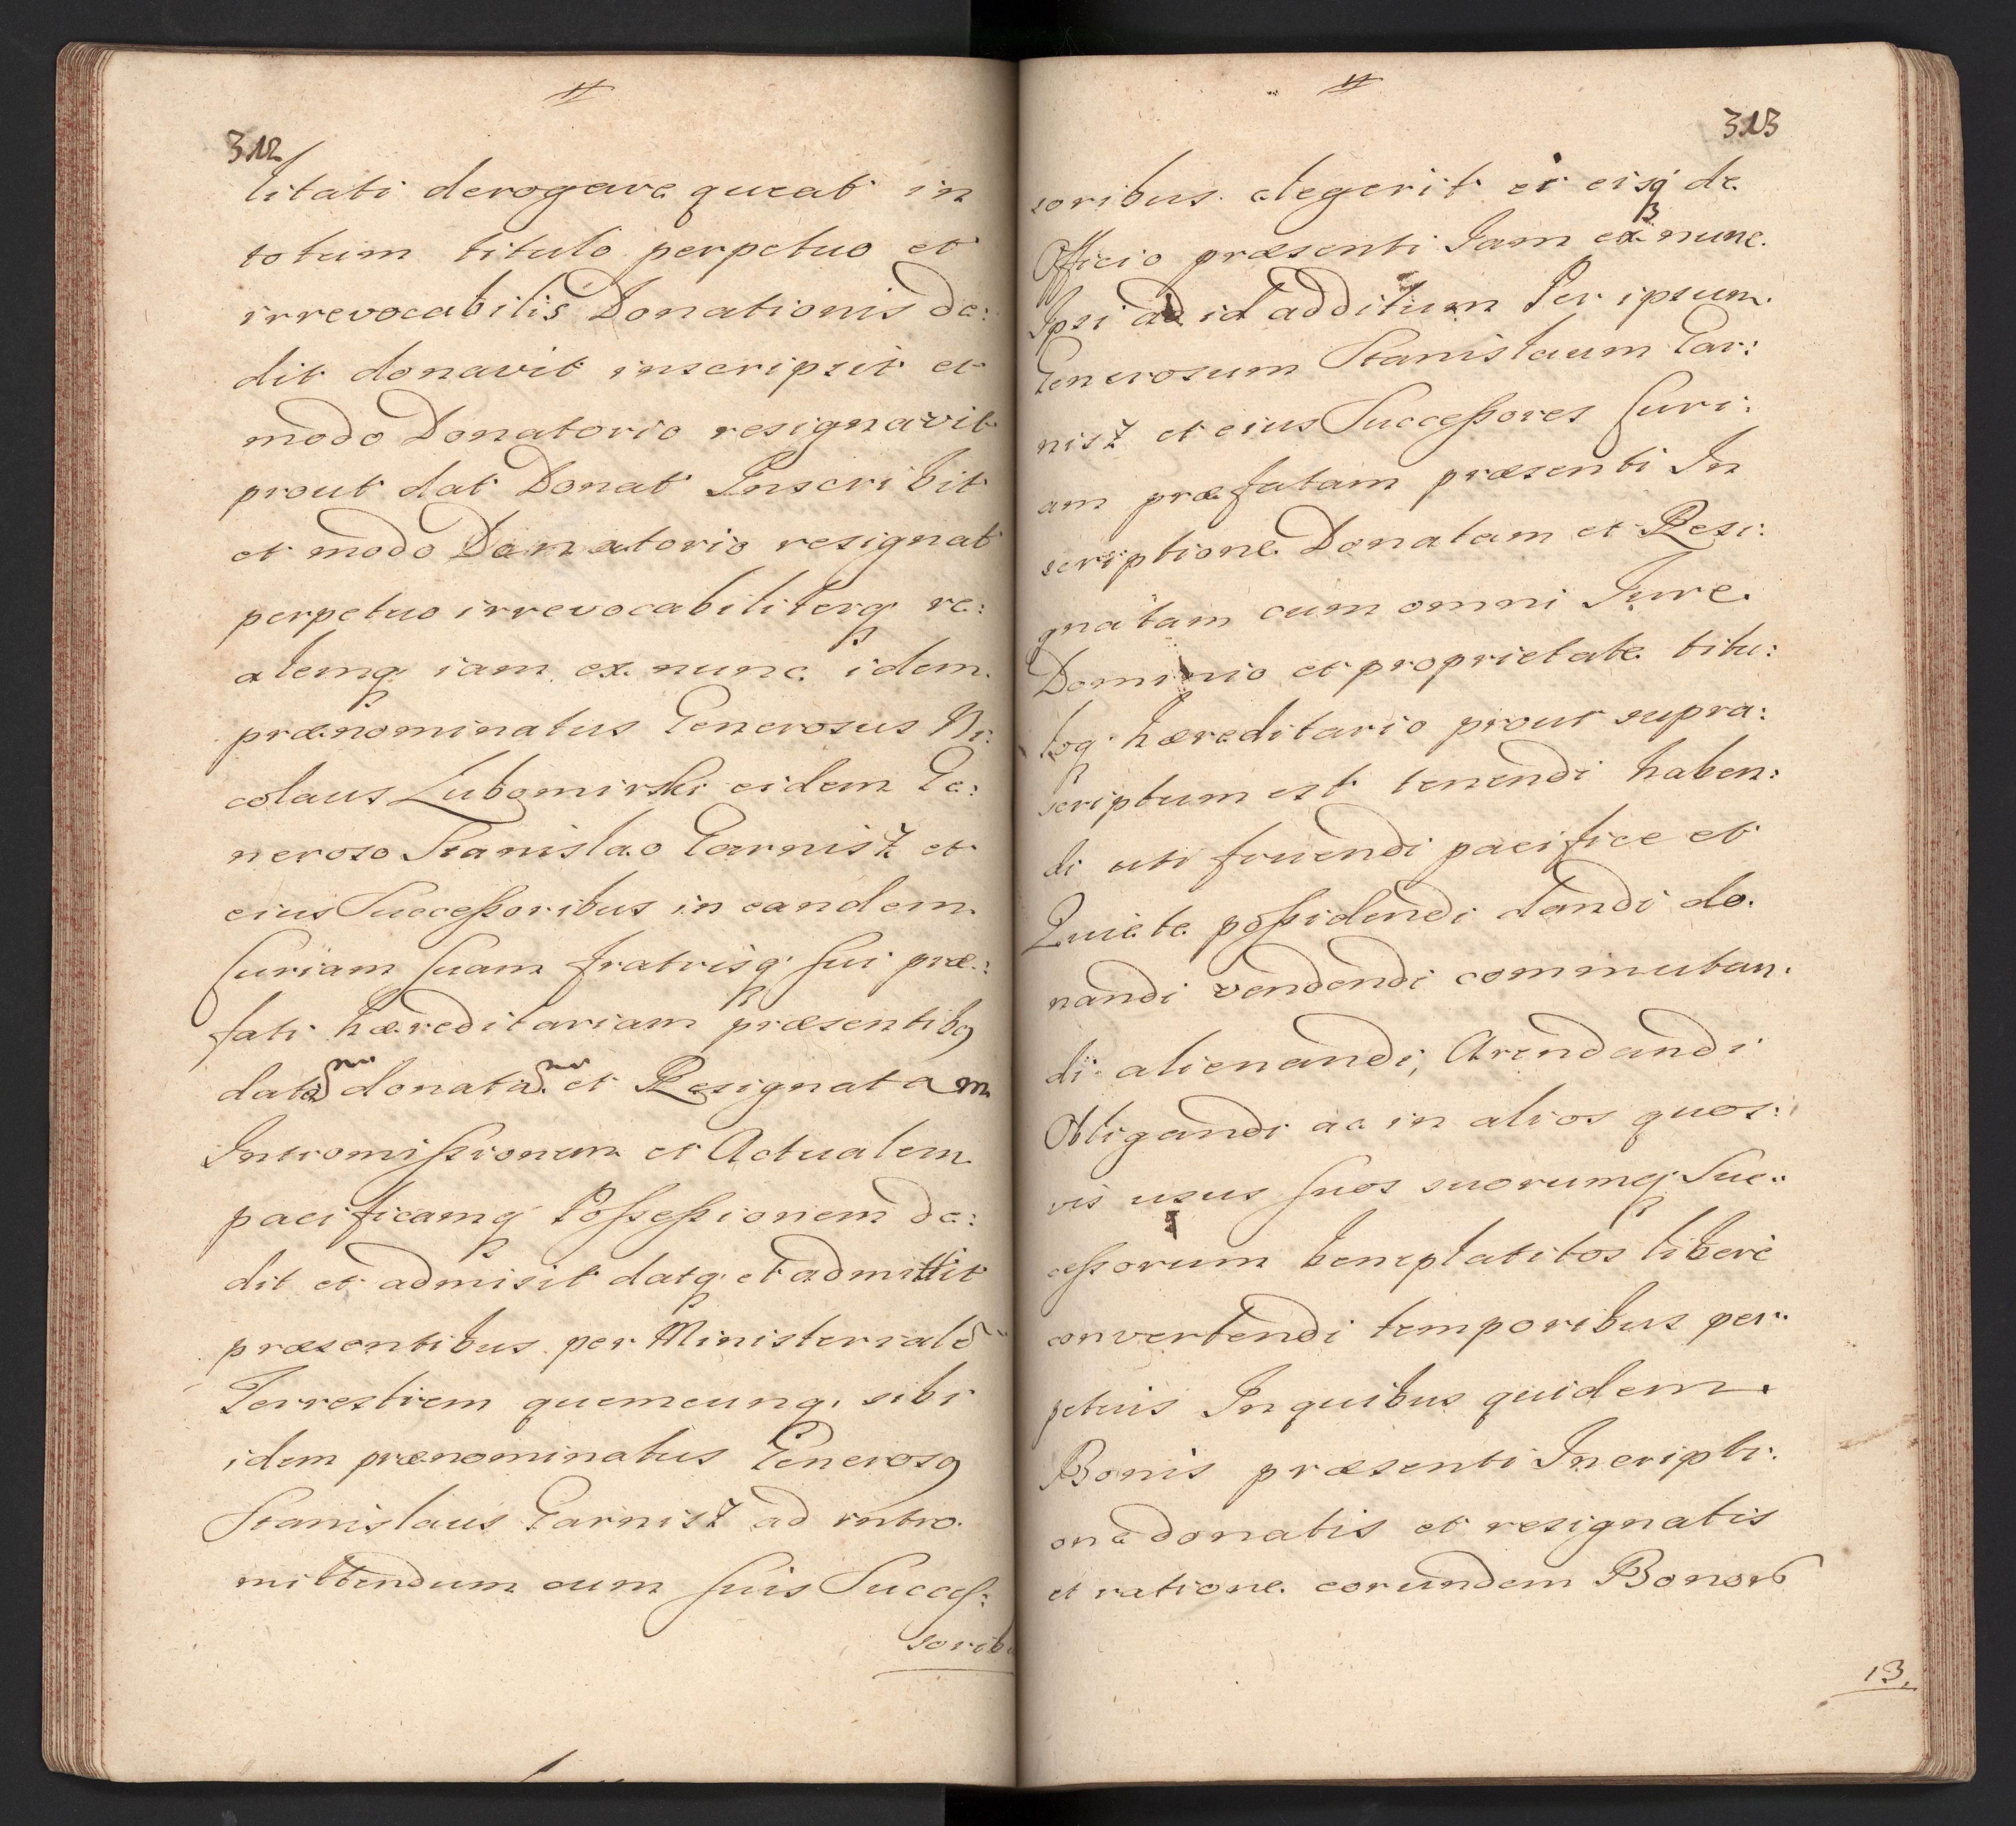 312
litati derogare queat in
totum titulo perpetuo et
irrevocabilis Donationis de:
dit donavit inscripsit et
modo Donatorio resignavit
prout dat Donat Inscribit
et modo Donatorio resignat
perpetuo irrevocabiliterq re:
alemq iam ex nunc idem
prænominatus Generosus Ni:
colaus Lubomirski eidem Ge:
neroso Stanislao Garnisz et
eius Successoribus in eandem
Curiam suam fratrisq sui præ:
fati hæreditariam præsentibq
datam donatam et Resignatam
Intromissionem et Actualem
pacificamq Possessionem de:
dit et admisit datq et admittit
præsentibus per Ministerialē
Terrestrem quemcunq sibi
idem prænominatus Generosq
Stanislaus Garnisz ad intro
mittendum cum suis Succes:
sorib
313
soribus elegerit ei eisq de
Officio præsenti Iam ex nunc
Ipsi ad id additum Per ipsum
Generosum Stanislaum Gar:
nisz et eius Successores Curi:
am præfatam præsenti In
scriptione Donatam et Resi:
gnatam cum omni Jure
Dominio et proprietate titu:
loq hæreditario prout supra:
scriptum est tenendi haben:
di uti fruendi pacifice et
Quiete possidendi dandi do
nandi vendendi commutan:
di alienandi, Arendandi
Obligandi ac in alios quos:
vis usus suos suorumq Suc:
cessorum beneplatitos liberè
convertendi temporibus per:
petuis In quibus quidem
Bonis præsenti Incripti:
one donatis et resignatis
et ratione eorundem Bonor
13.